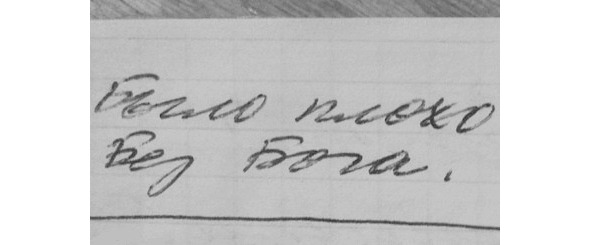 Было плохо
Без Бога.